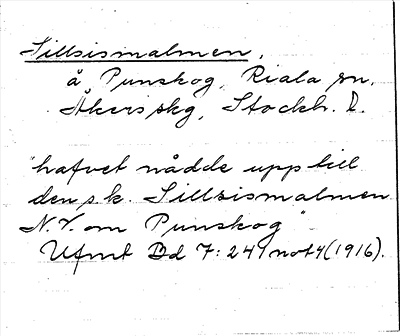 Sillsismalmen,
å Punskog, Riala sn.
Åkers skg, Stockh. l.
"hafvet nådde upp till
den s.k. Sillsismalmen
N.V. om Punskog"
Ufmt Bd 7: 241 not 4 (1916).